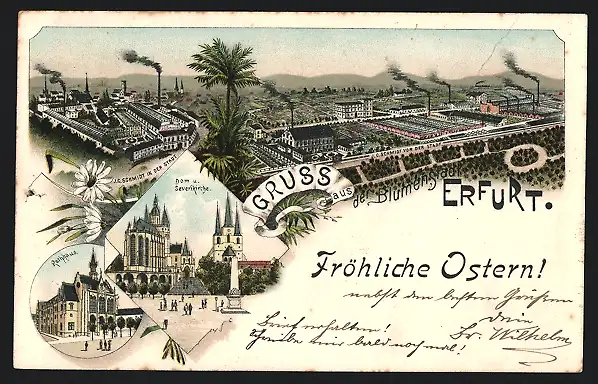 J.C. SCHMIDT IN DER STADT.
J.C. SCHMIDT VOR DER STADT.
Dom u.
Severikirche.
Rathhaus
GRUSS
aus
der Blumenstadt
ERFURT.
Fröhliche Ostern!
nebst den besten Grüßen
Dein
Fr. Wilhelm
Brief erhalten!
Schreibe mir bald noch mal!